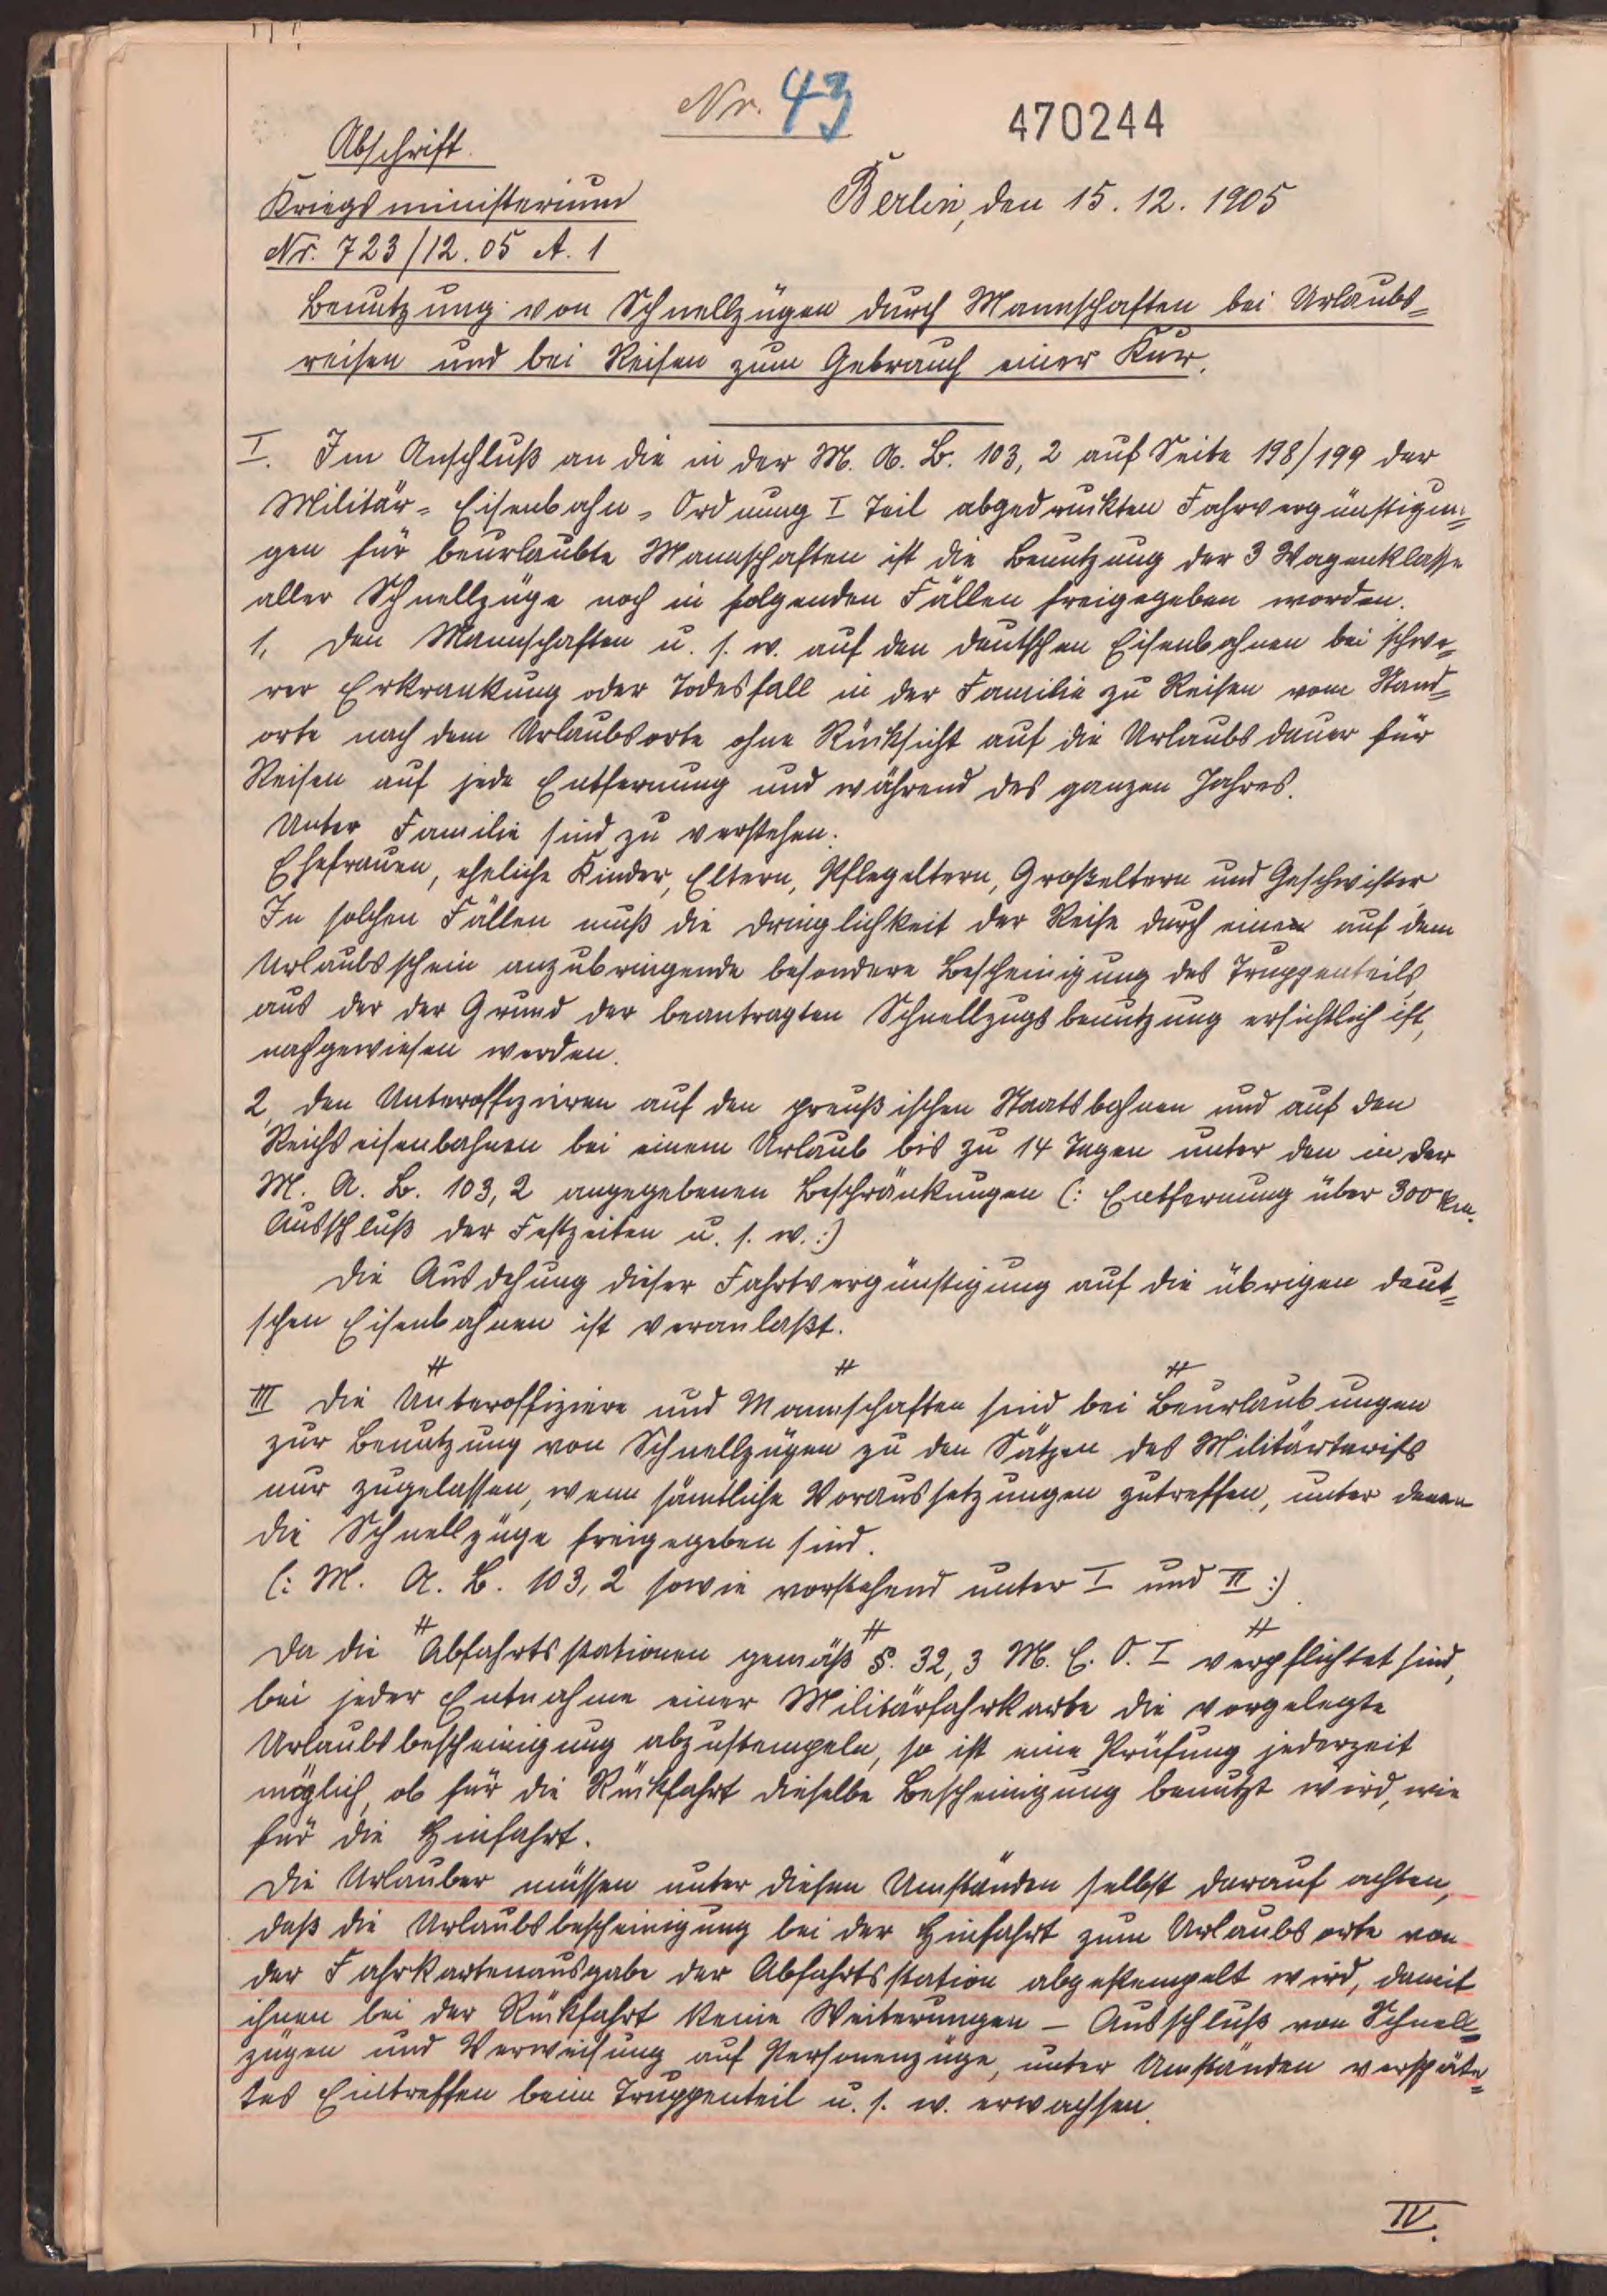 Nr. 43
470244
Abschrift.
Kriegsministerium
Berlin, den 15. 12. 1905
Nr. 723/12. 05 A. 1
Benutzung von Schnellzügen durch Mannschaften bei Urlaubs-
reisen und bei Reisen zum Gebrauch einer Kur.
I. Im Anschluß an die in der M. A. B. 103, 2 auf Seite 198/199 der
Militär-Eisenbahn-Ordnung I Teil abgedruckten Fahrvergünstigun-
gen für beurlaubte Mannschaften ist die Benutzung der 3 Wagenklasse
aller Schnellzüge noch in folgenden Fällen freigegeben worden.
1, den Mannschaften u. s. w. auf den deutschen Eisenbahnen bei schwe-
rer Erkrankung oder Todesfall in der Familie zu Reisen vom Stand-
orte nach dem Urlaubsorte ohne Rücksicht auf die Urlaubsdauer für
Reisen auf jede Entfernung und während des ganzen Jahres.
Unter Familie sind zu verstehen:
Ehefrauen, eheliche Kinder, Eltern, Pflegeltern, Großeltern und Geschwister
In solchen Fällen muß die Dringlichkeit der Reise durch eine auf dem
Urlaubsschein anzubringende besondere Bescheinigung des Truppenteils,
aus der der Grund der beantragten Schnellzugsbenutzung ersichtlich ist,
nachgewiesen werden.
2, den Unteroffizieren auf den preußischen Staatsbahnen und auf den
Reichseisenbahnen bei einem Urlaub bis zu 14 Tagen unter den in der
M. A. B. 103, 2 angegebenen Beschränkungen (: Entfernung über 300 km.
Ausschluß der Festzeiten u. s. w. :)
Die Ausdehung dieser Fahrtvergünstigung auf die übrigen deut-
schen Eisenbahnen ist veranlaßt.
# # #
III Die Unteroffiziere und Mannschaften sind bei Beurlaubungen
zur Benutzung von Schnellzügen zu den Sätzen des Militärtarifs
nur zugelassen, wenn sämtliche Voraussetzungen zutreffen, unter denen
die Schnellzüge freigegeben sind.
(: M. A. B. 103, 2 sowie vorstehend unter I und II :)
# # #
Da die Abfahrtsstationen gemäß §. 32, 3 M. E. O. I verpflichtet sind,
bei jeder Entnahme einer Militärfahrkarte die vorgelegte
Urlaubsbescheinigung abzustempeln, so ist eine Prüfung jederzeit
möglich, ob für die Rückfahrt dieselbe Bescheinigung benutzt wird, wie
für die Hinfahrt.
Die Urlauber müssen unter diesen Umständen selbst darauf achten,
daß die Urlaubsbescheinigung bei der Hinfahrt zum Urlaubsorte von
der Fahrkartenausgabe der Abfahrtsstation abgestempelt wird, damit
ihnen bei der Rückfahrt keine Weiterungen – Ausschluß von Schnell-
zügen und Verweisung auf Personenzüge, unter Umständen verspäte-
tes Eintreffen beim Truppenteil u. s. w. erwachsen.
IV.